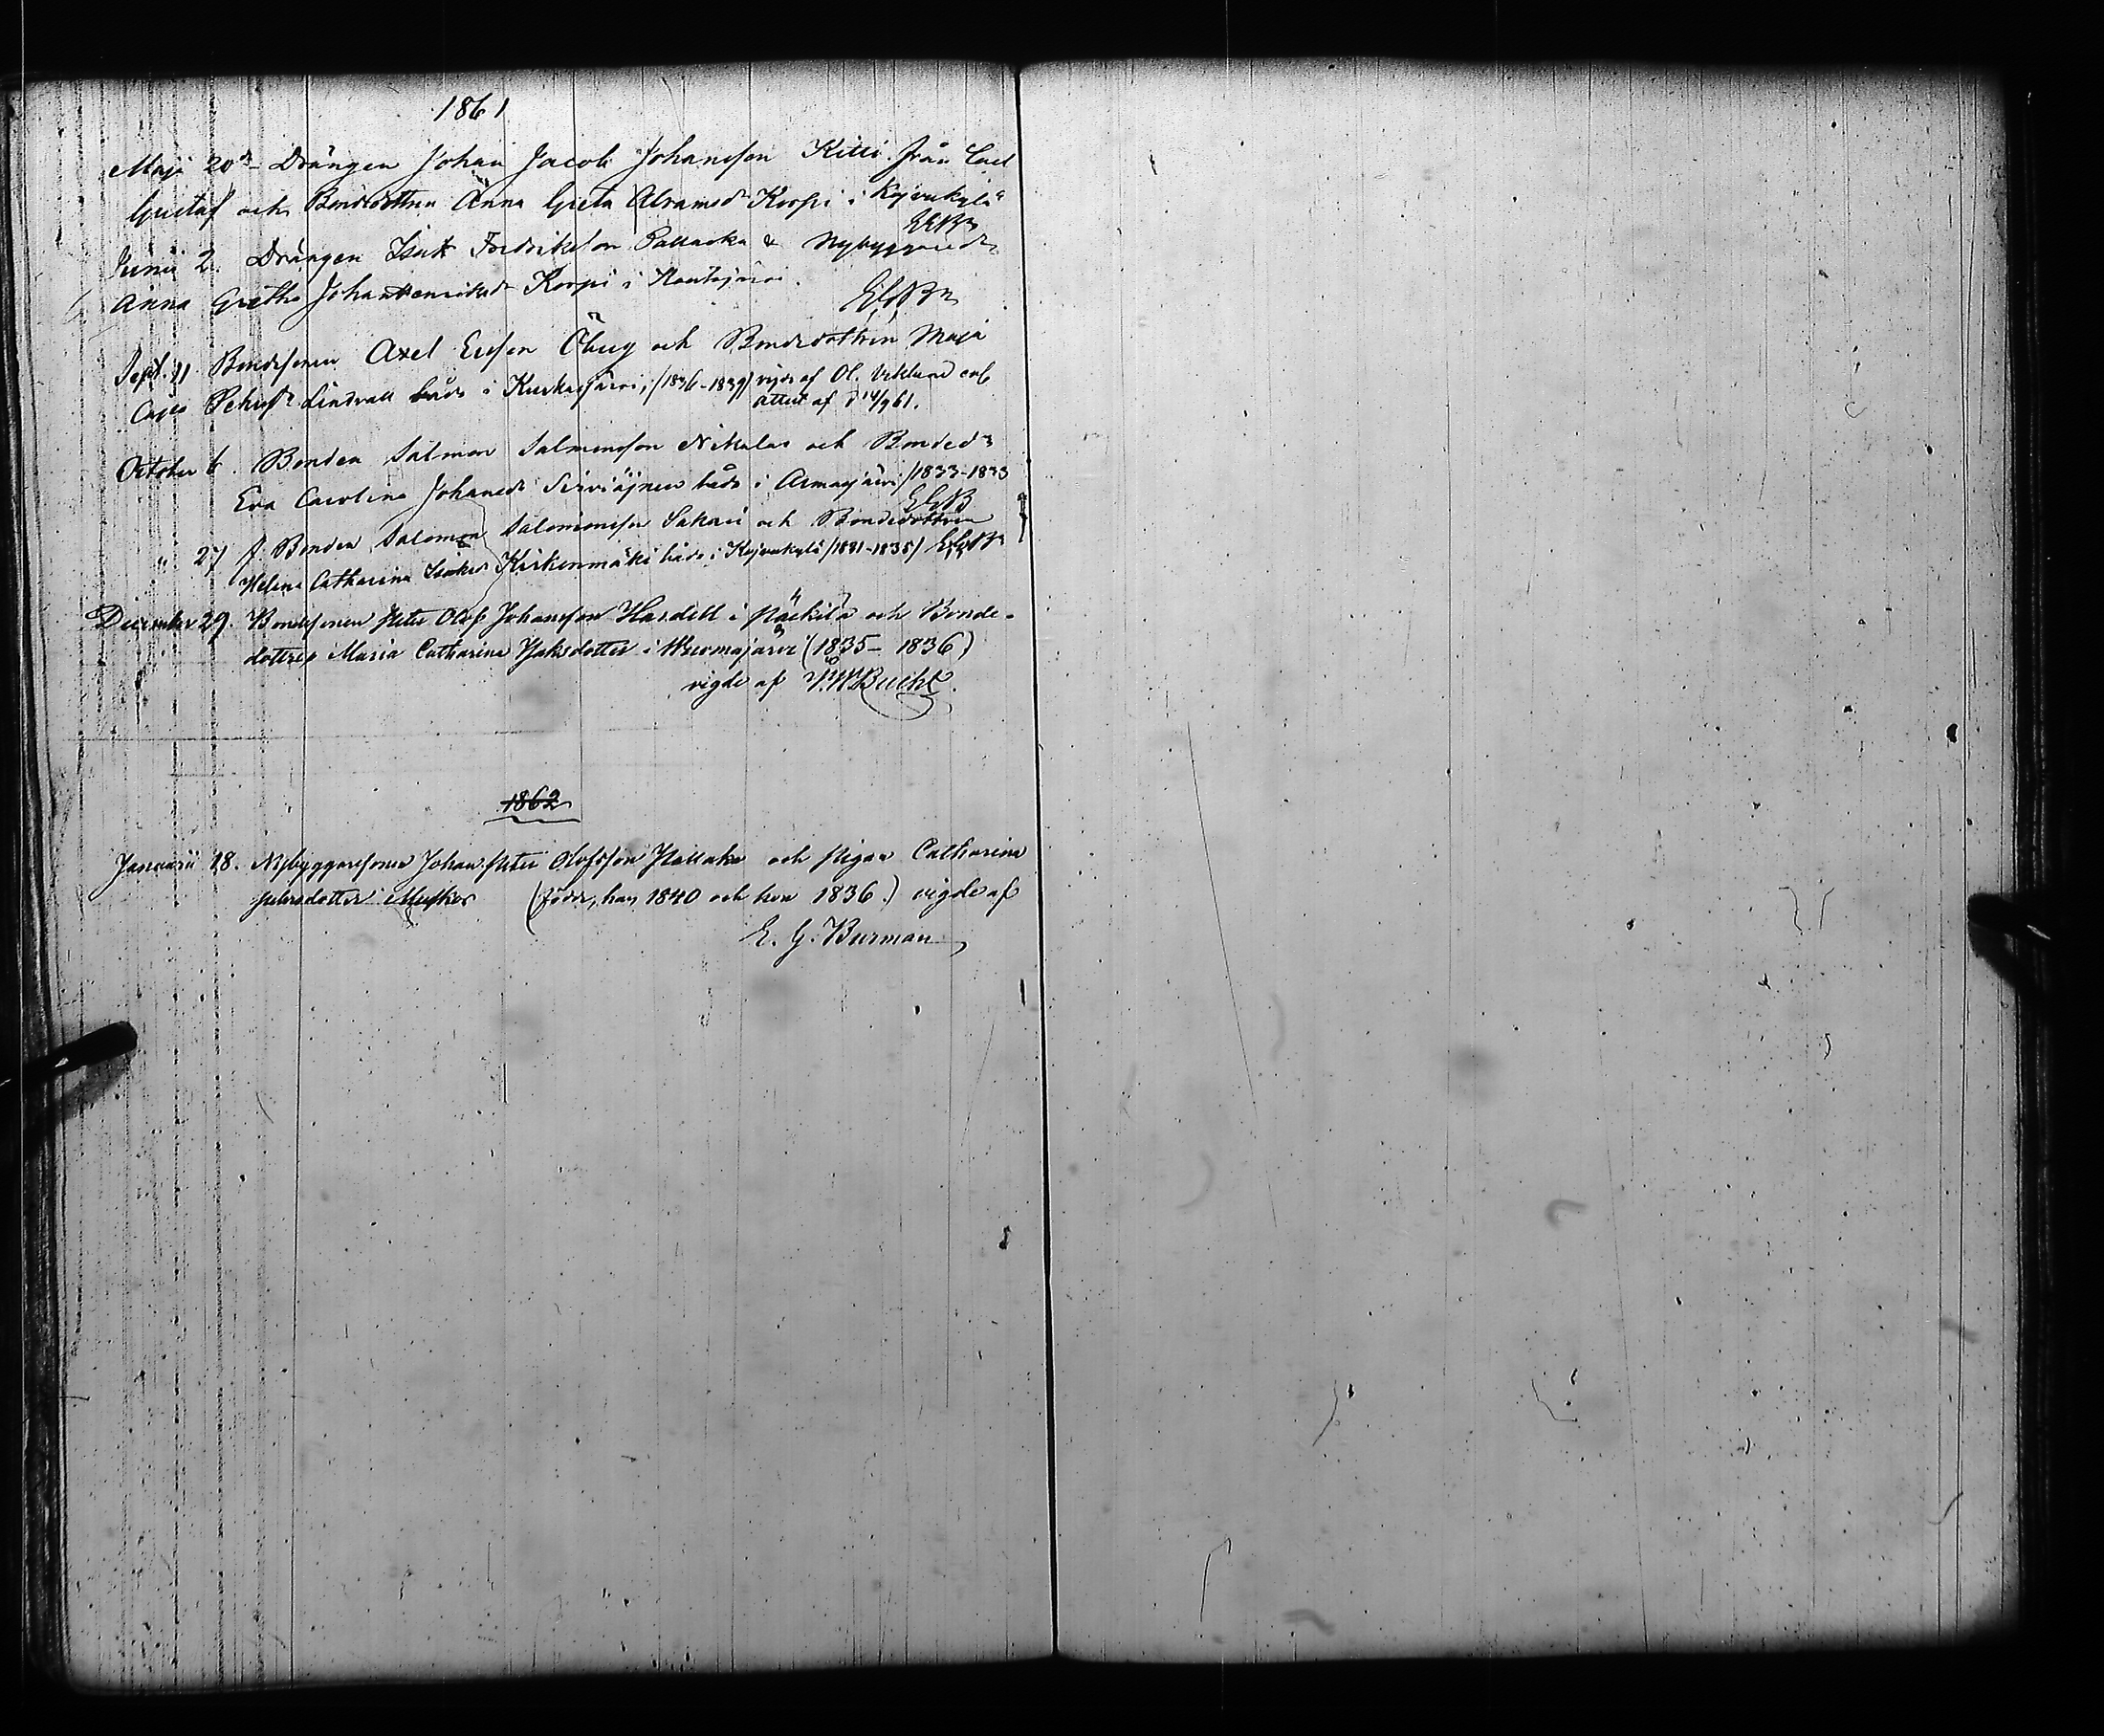 1861
Maji 20de Drängen Johan Jacob Johansson Kitti från Carl
Gustaf och Bondedottren Anna Greta Abramsdr Korpi i Kojvukylä
EGBn
Junii 2. Drängen Isak Fredriksson Pallacka & Nybyggaredr
Anna Gretha Johan Henriksdr Korpi i Rautajärvi.
EGBn
Sept. 11 Bondesonen Axel Ericson Öberg och Bondedottren Maja
Cajsa Lindvall både i Kuckasjärvi, (1836-1839) vigde af Ol. Viklund enl
attest af d 14/9 61.
October 6. Bonden Salmon Salmonsson Nikulas och Bondedr
Eva Carolina Johansdr Sirviäjnen både i Armasjärvi (1833-1833
EGB
" 27 f Bonden Salomon Salomonsson Sakari och Bondedottren
Helena Catharina Isaksdr Kirkenmäki både i Kojvukylä (1831-1835) EGBn
December 29. Bondesonen Peter Olof Johansson Hardell i Päckilä och Bonde-
dottren Maria Catharina Isaksdotter i Wuomajärvi (1835- 1836)
vigde af P. W Bucht.
1862
Januarii 18. Nybyggaresonen Johan Peter Olofsson Pallaka och Pigan Catharina
Petersdotter (född, han 1840 och hon 1836.) vigde af
E. G. Burman